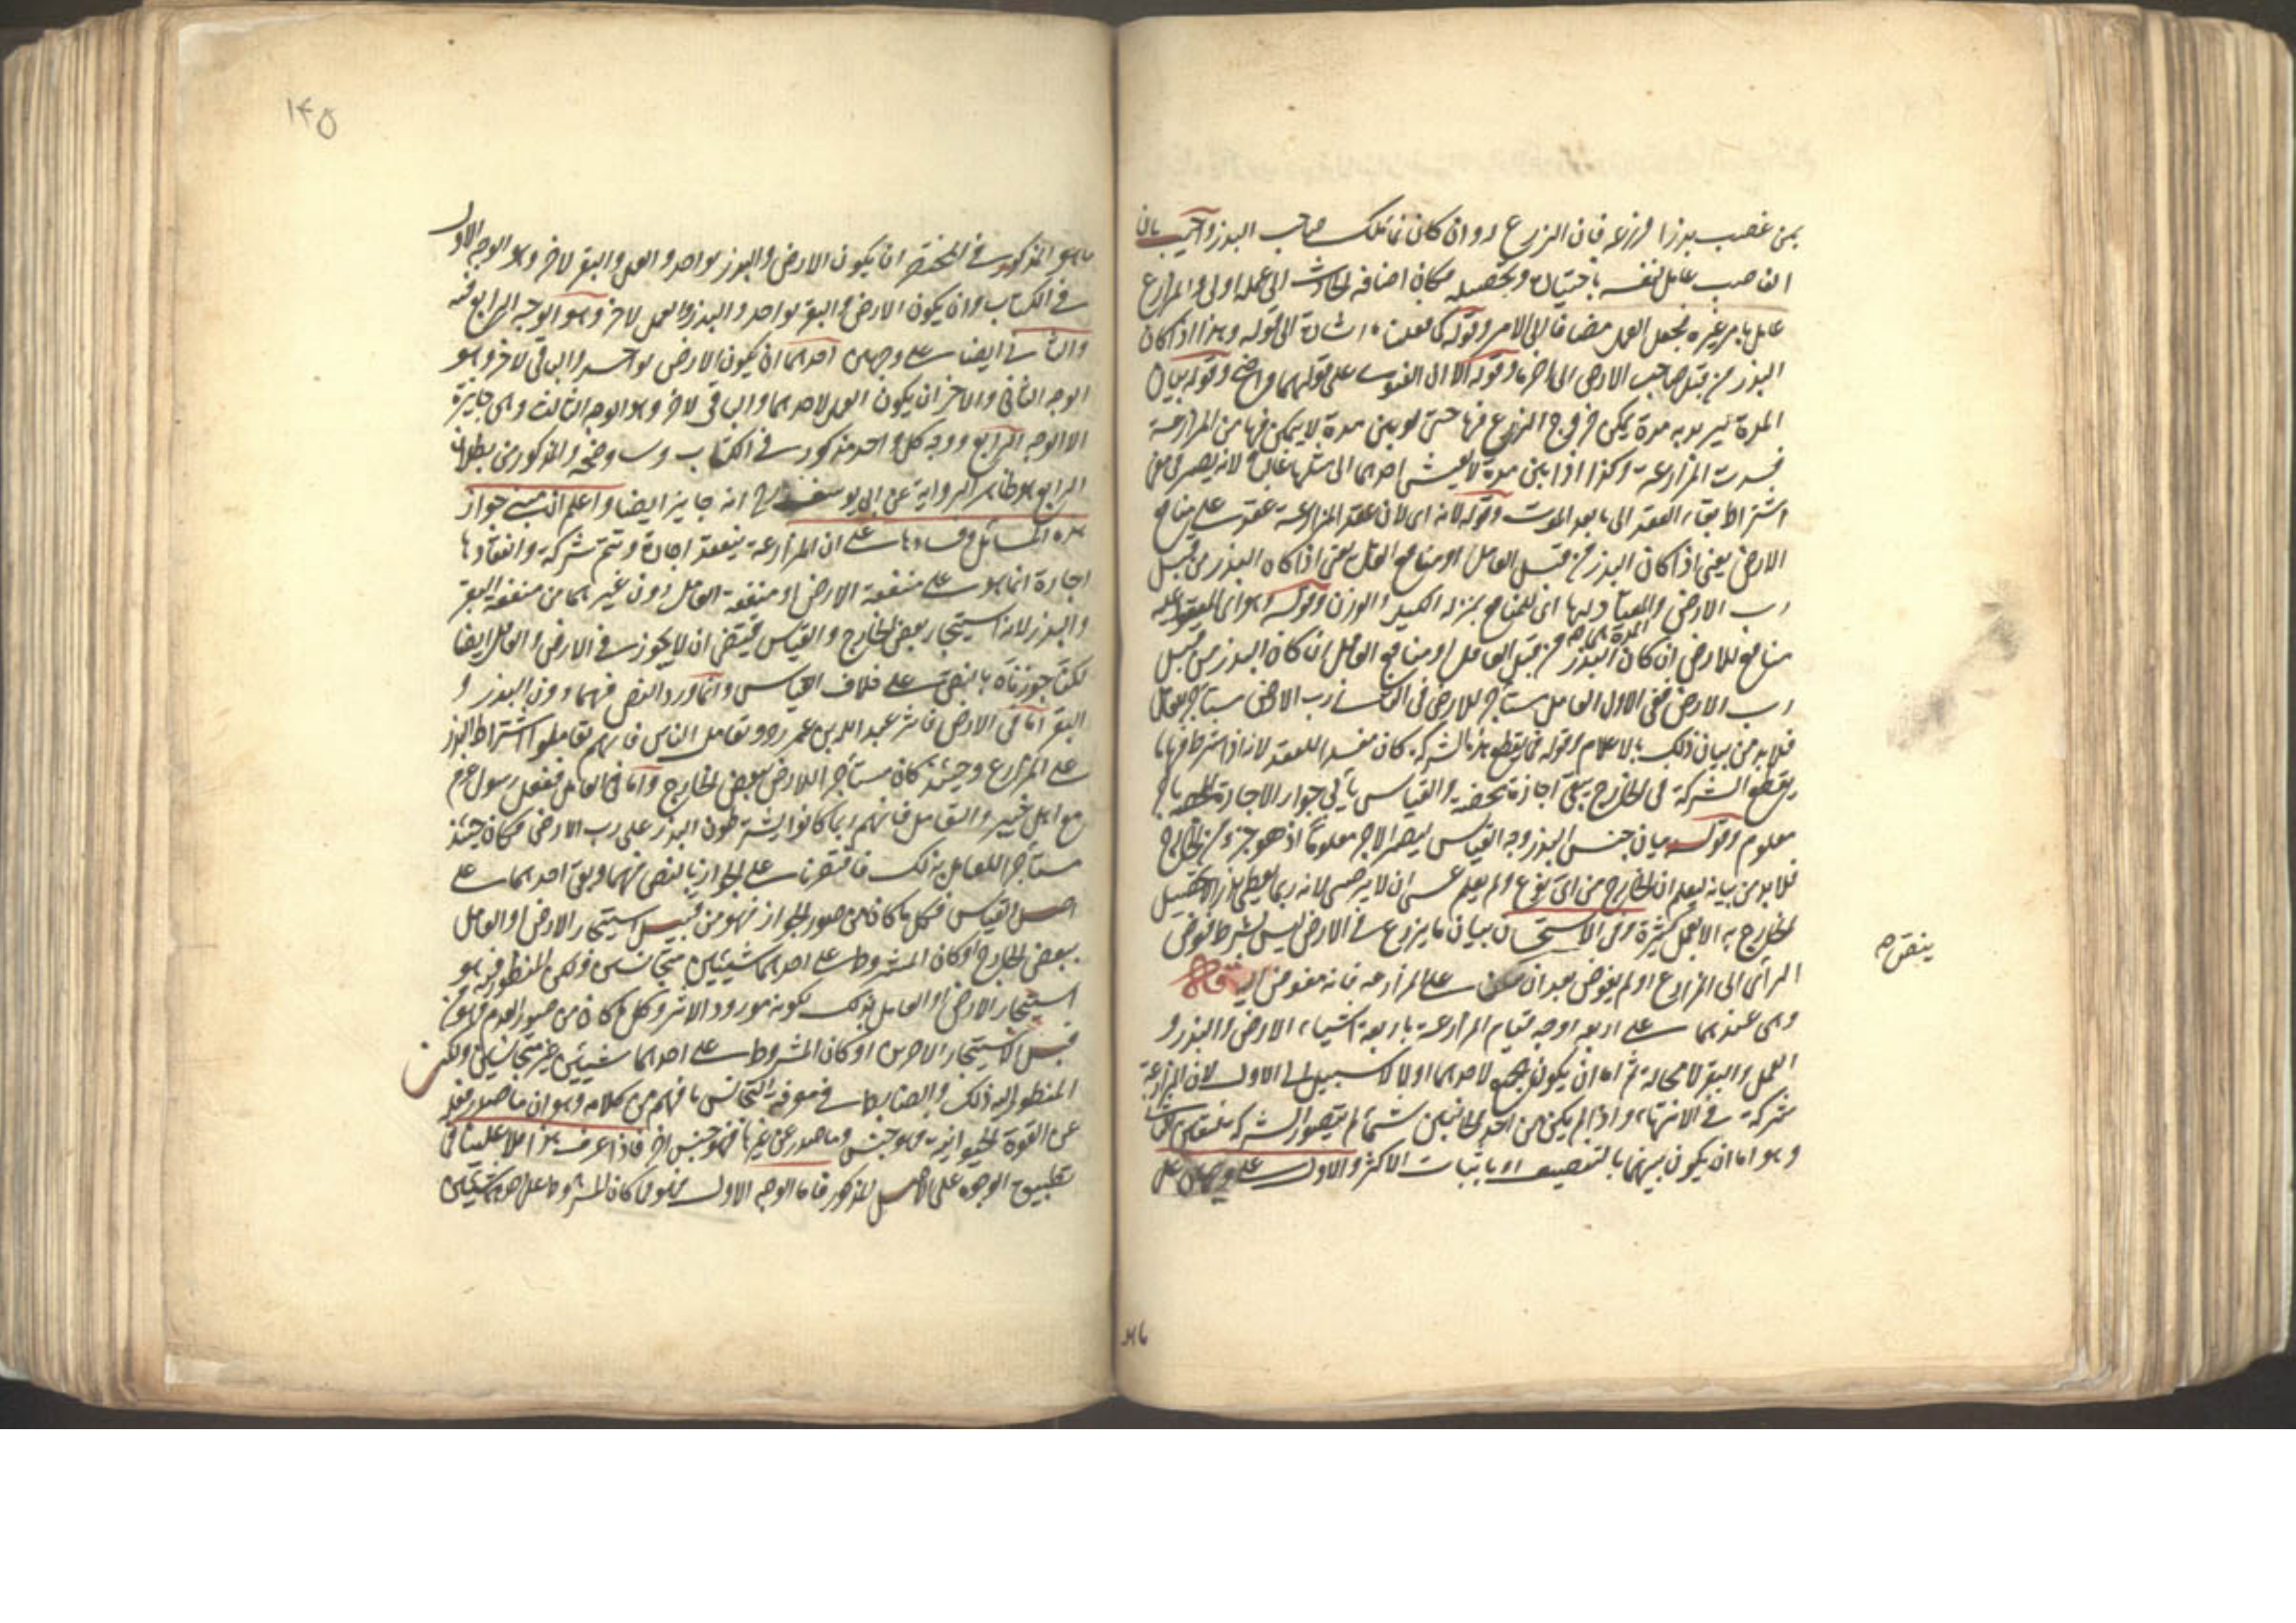 بمن غصب بذرا فزرعه فان الزرع له وان كان نماء ملك صاحب البذر واجيب بان
الغاصب عامل لنفسه باختياره وتحصيله فكان اضافة الحادث الى عمله اولى والمزارع
عامل بامر غيره فجعل العمل مضافا الى الامر وقوله كما فعلت اشارة الى قوله وهذا اذا كان
البذر من قبل صاحب الارض الى اخره وقوله الا ان الفتوى على قولهما واضح وقوله بيان
المدة يريد به مدة يمكن خروج الزرع فيها حتى لو بين مدة لا يتمكن فيها من المزارعة
فسدت المزارعة وكذا اذا بين مدة لا يعيش احدهما الى مثلها غالبا لانه يصير في معنى
اشتراط بقاء العقد الى ما بعد الموت وقوله لانه اى لان عقد المزارعة عقد على منافع
الارض يعنى اذا كان البذر من قبل العامل او منافع العامل يعنى اذا كان البذر من قبل
رب الارض والمعيار لها اى للمنافع بمنزلة الكيل والوزن وقوله وهو اى المعقود عليه
المدة هى
منافع للارض ان كان البذر من قبل العامل او منافع العامل ان كان البذر من قبل
رب الارض ففى الاول العامل مستأجر للارض وفى الثانى رب الارض مستأجر للعامل
فلابد من بيان ذلك بالاعلام وقوله فما يقطع هذه الشركة كان مفسدا للعقد لانه اذا شرط فيها ما
يقطع الشركة فى الخارج تبقى اجازة محضة والقياس يأبى جواز الاجارة المحضة باجر
معلوم وقوله بيان جنس البذر وجه القياس ليصير الاجر معلوما اذ هو جزء من الخارج
فلابد من بيانه ليعلم ان الخارج من اى نوع ولم يعلم عسى ان لا يرضى لانه ربما يعطى بذرا لا يحصل
الخارج به الا بعمل كثيرة وفى الاستحسان بيان ما يزرع فى الارض ليس بشرط فوض
الرأى الى المزارع او لم يفوض بعد ان نص على المزارعة فانه مفوض اليه قال
وهى عندهما على اربعة اوجه قيام المزارعة باربعة اشياء الارض والبذر و
العمل والبقر لا محالة ثم اما ان يكون الجميع لاحدهما او لا لا سبيل الى الاول لان المزارعة
شركة فى الانتهاء واذا لم يكن من احد الجانبين شئ لم يتصور الشركة فتعين الثانى
وهو اما ان يكون بينهما بالتنصيف او باثبات الاكثر والاول على وجهين على
ينقص صح
ما هو المذكور فى المختصر ان يكون الارض والبذر لواحد والعمل والبقر لاخر وهو الوجه الاول
فى الكتاب وان يكون الارض والبقر لواحد والبذر والعمل لاخر وهو الوجه الرابع فيه
والثانى ايضا على وجهين احدهما ان يكون الارض لواحد والباقى لاخر وهو
الوجه الثانى والاخر ان يكون العمل لاحدهما والباقى لاخر وهو الوجه الثالث وهى جايزة
الا الوجه الرابع ووجه كل واحد مذكور فى الكتاب وسنوضحه والمذكور من بطلان
الرابع هو ظاهر الرواية عن ابى يوسف رح انه جايز ايضا واعلم ان مبنى جواز
هذه المسائل وفسادها على ان المزارعة ينعقد اجارة وتتم شركة وانعقادها
اجارة انما هو على منفعة الارض او منفعة العامل دون غيرهما من منفعة البقر
والبذر لانه استيجار ببعض الخارج والقياس يقتضى ان لا يجوز فى الارض والعامل ايضا
لكنا جوزناه بالنص على خلاف القياس وانما ورد النص فيهما دون البذر و
البقر اما فى الارض فاثر عبد الله بن عمر رض وتعامل الناس فانهم تعاملوا اشتراط البذر
على المزارع وحينئذ كان مستأجرا للارض ببعض الخارج واما فى العامل ففعل رسول عم
مع اهل خيبر والتعامل فانهم ربما كانوا يشترطون البذر على رب الارض فكان حينئذ
مستأجرا للعامل بذلك فاقتصرنا على الجواز بالنص فيهما وبقى احدهما على
اصل القياس فكل ما كان من صور الجواز فهو من قبيل استيجار الارض او العامل
ببعض الخارج او كان المشروط على احدهما شيئين متجانسين ولكن المنظور فيه هو
استيجار الارض او العامل بذلك لكونه مورود الاثر وكل ما كان من صور العدم فهو من
قبيل الاستيجار الاخرين او كان المشروط على احدهما شيئين غير متجانسين ولكن
المنظور اليه ذلك والضابط فى معرفة التجانس ما فهم من كلامه وهو ان ما صدر فعله
عن القوة الحيوانية فهو جنس وما صدر عن غيرها فهو جنس اخر فاذا عرف هذا فلا علينا فى
تطبيق الوجوه على الاصل المذكور فاما الوجه الاول فهو مما كان المشروط على احدهما شيئين